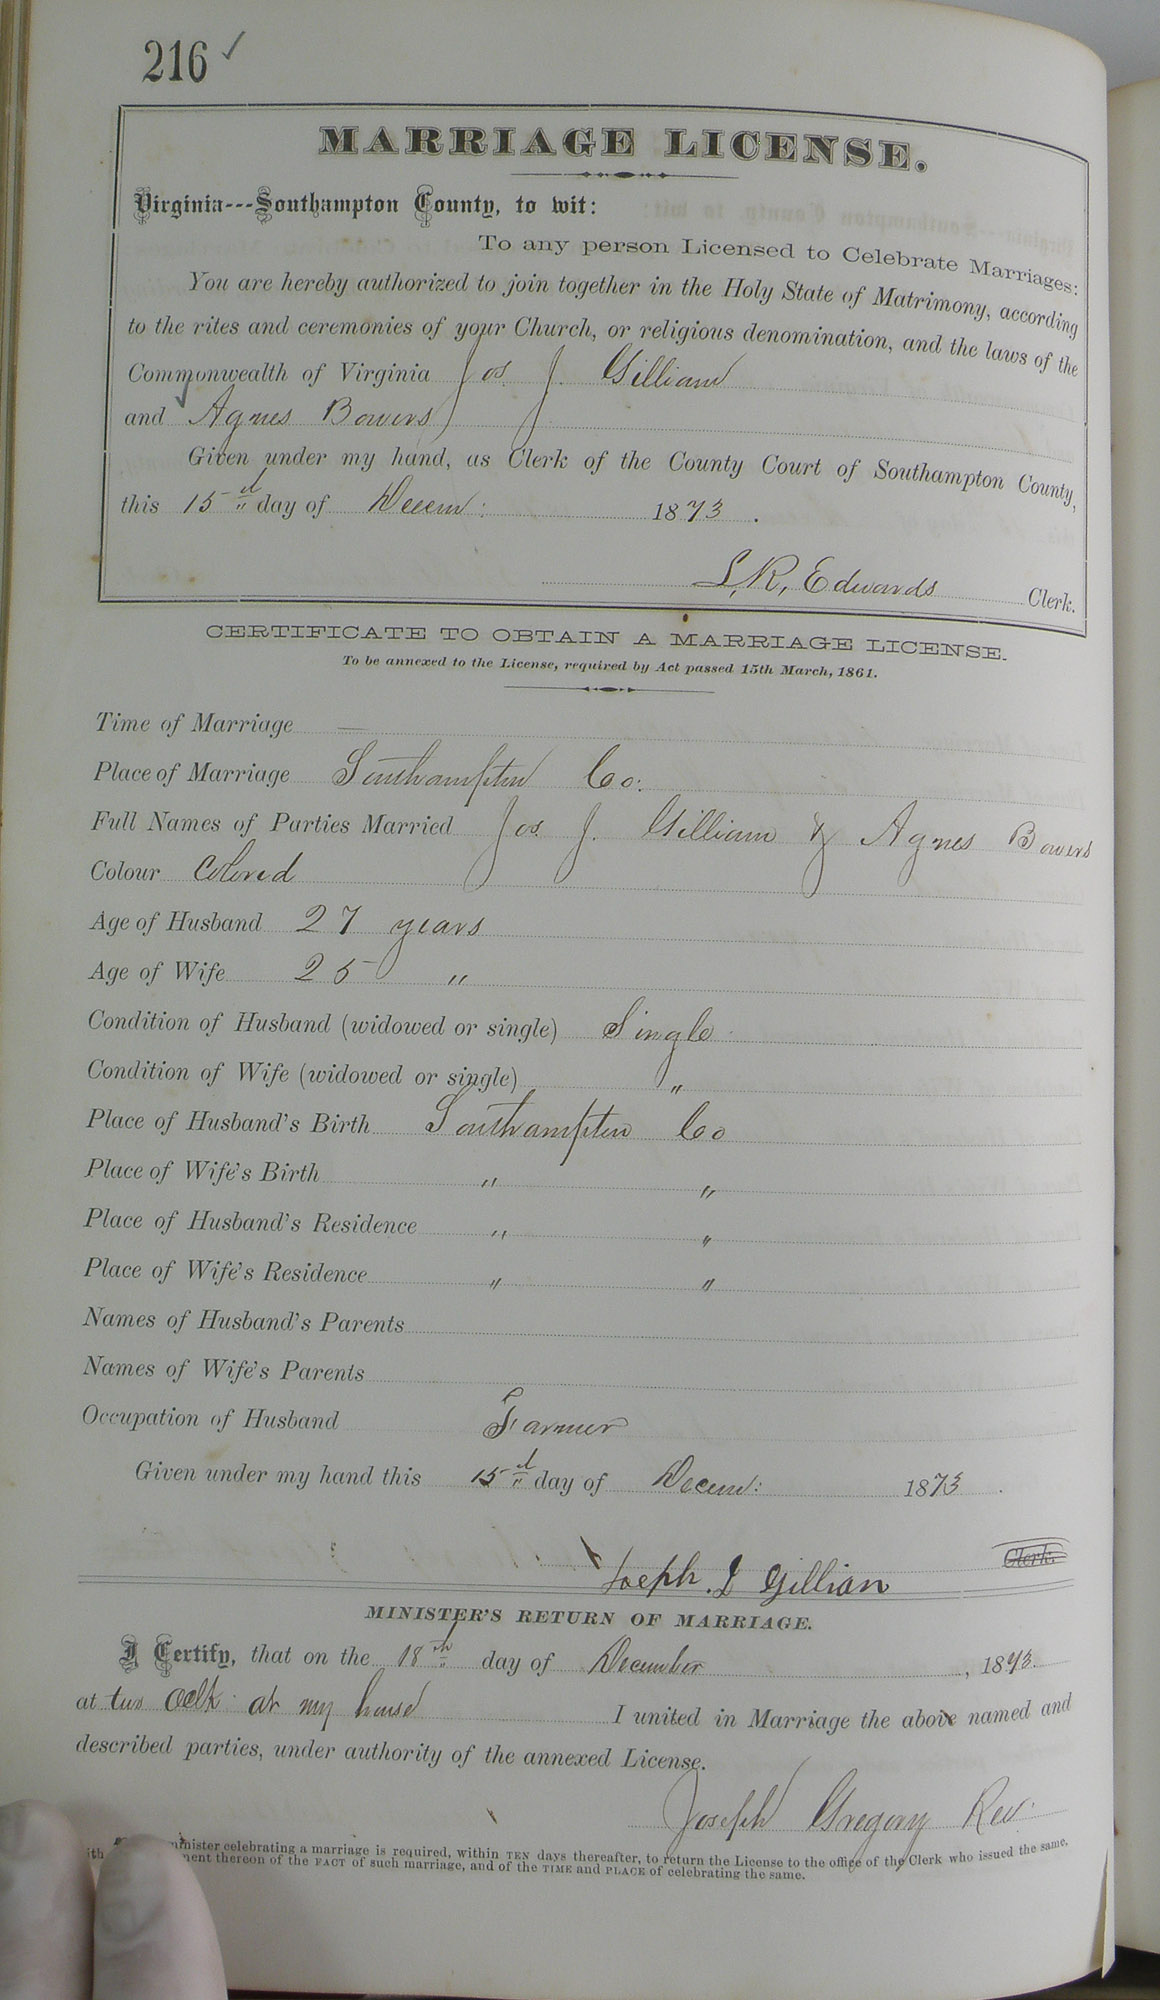 216 ✓
MARRIAGE LICENSE.
Virginia---Southampton County, to wit:
To any person Licensed to Celebrate Marriages:
You are hereby authorized to join together in the Holy State of Matrimony, according
to the rites and ceremonies of your Church, or religious denomination, and the laws of the
Commonwealth of Virginia Jos. J. Gilliam
and Agnes Bowers
Given under my hand, as Clerk of the County Court of Southampton County,
this 15th day of Decem: 1873.
L. R. Edwards Clerk.
CERTIFICATE TO OBTAIN A MARRIAGE LICENSE.
To be annexed to the License, required by Act passed 15th March, 1861.
Time of Marriage —
Place of Marriage Southampton Co:
Full Names of Parties Married Jos. J. Gilliam & Agnes Bowers
Colour Colored
Age of Husband 27 years
Age of Wife 25 "
Condition of Husband (widowed or single) Single
Condition of Wife (widowed or single) "
Place of Husband's Birth Southampton Co
Place of Wife's Birth " "
Place of Husband's Residence " "
Place of Wife's Residence " "
Names of Husband's Parents
Names of Wife's Parents
Occupation of Husband Farmer
Given under my hand this 15th day of Decem: 1873.
Joeph. J Gillian Clerk.
MINISTER'S RETURN OF MARRIAGE.
I Certify, that on the 18th day of December, 1873.
at two oclk at my house I united in Marriage the above named and
described parties, under authority of the annexed License.
Joseph Gregory Rev.
minister celebrating a marriage is required, within TEN days thereafter, to return the License to the office of the Clerk who issued the same,
thereon of the FACT of such marriage, and of the TIME and PLACE of celebrating the same.